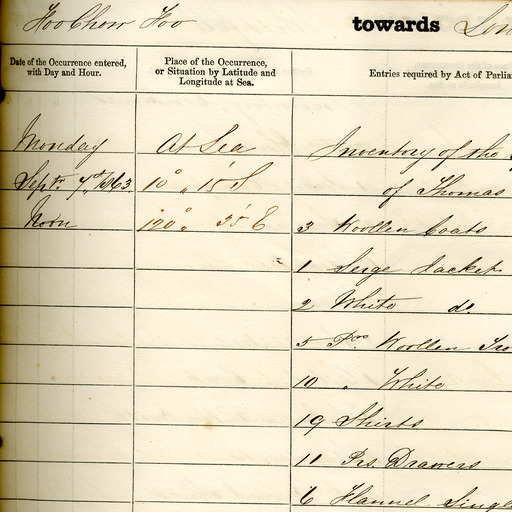 Foo Chow Foo towards Lon
Date of the Occurrence entered, with Day and Hour.
Place of the Occurrence, or Situation by Latitude and Longitude at Sea.
Entries required by Act of Parlia
Monday At Sea Inventory of the
Septr. 7th 1863. 10° " 15' S of Thomas
Noon 120° 35' E 3 Woollen Coats
1 Serge Jacket
2 White do
5 Prs Woollen Tro
10 " White
19 Shirts
11 Prs. Drawers
6 Flannel Singl